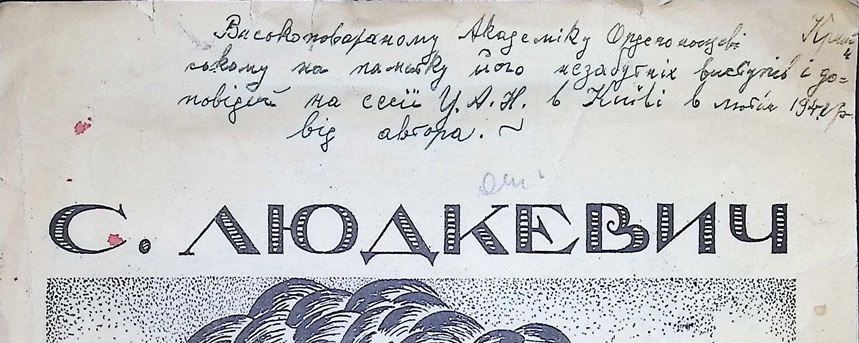 Високоповажаному Академіку Орденоносцеві Крим
ському на памятку його незабутніх виступів і до=
повідей на сесії У.А.Н. в Київі в лютім 194 р
від автора.
С. ЛЮДКЕВИЧ